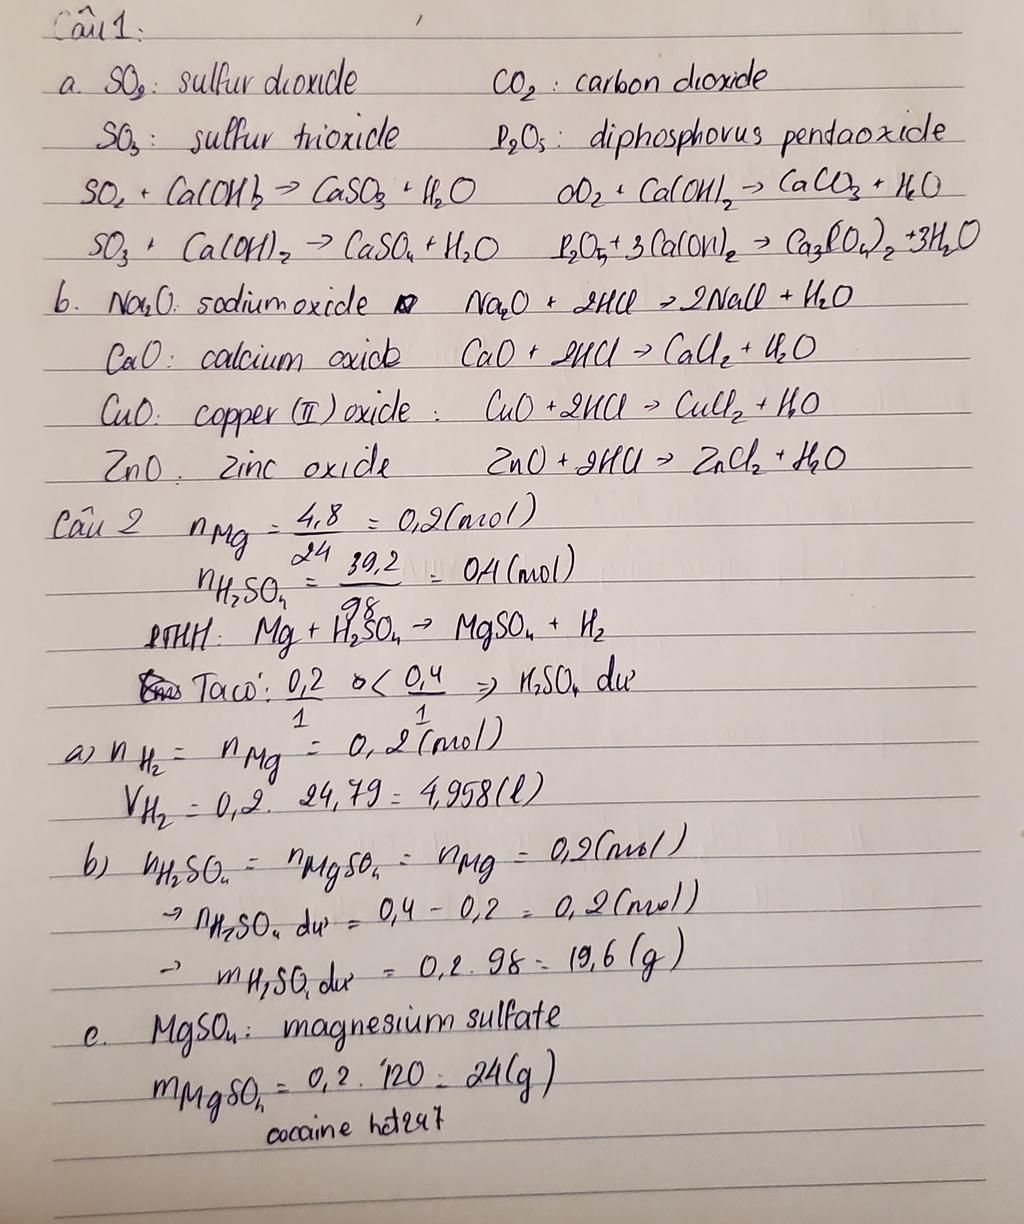 Câu 1:
a. SO₂: sulfur dioxide CO₂: carbon dioxide
SO₃: sulfur trioxide P₂O₅: diphosphorus pentaoxide
SO₂ + Ca(OH)₂ → CaSO₃ + H₂O CO₂ + Ca(OH)₂ → CaCO₃ + H₂O
SO₃ + Ca(OH)₂ → CaSO₄ + H₂O P₂O₅ + 3Ca(OH)₂ → Ca₃(PO₄)₂ + 3H₂O
b. Na₂O: sodium oxide Na₂O + 2HCl → 2NaCl + H₂O
CaO: calcium oxide CaO + 2HCl → CaCl₂ + H₂O
CuO: copper (II) oxide: CuO + 2HCl → CuCl₂ + H₂O
ZnO: zinc oxide ZnO + 2HCl → ZnCl₂ + H₂O
Câu 2 nMg = 4,8/24 = 0,2 (mol)
nH₂SO₄ = 39,2/98 = 0,4 (mol)
PTHH: Mg + H₂SO₄ → MgSO₄ + H₂
Ta có: 0,2/1 < 0,4/1 => H₂SO₄ dư
a) nH₂ = nMg = 0,2 (mol)
VH₂ = 0,2. 24,79 = 4,958 (l)
b) nH₂SO₄ = nMgSO₄ = nMg = 0,2 (mol)
→ nH₂SO₄ dư = 0,4 - 0,2 = 0,2 (mol)
→ mH₂SO₄ dư = 0,2. 98 = 19,6 (g)
c. MgSO₄: magnesium sulfate
mMgSO₄ = 0,2. 120 = 24 (g)
cocaine hot247